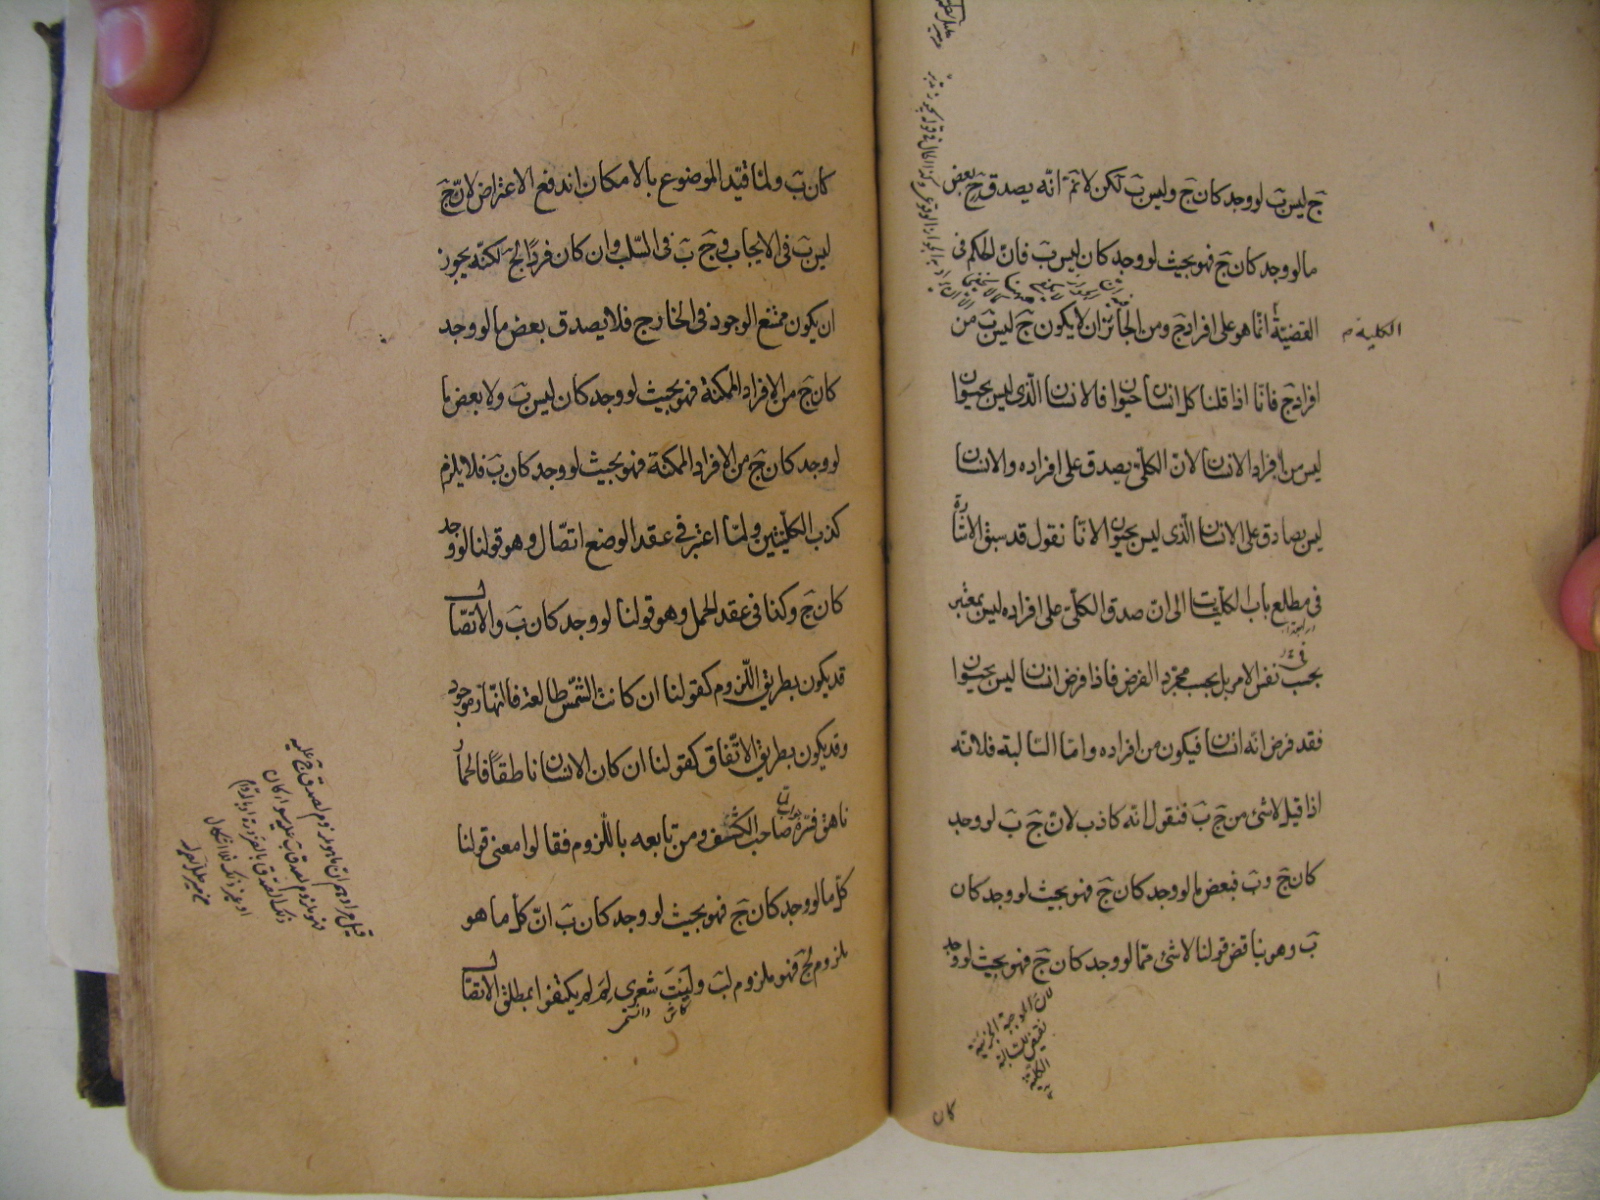 ج ليس ب لو وجد كان ج وليس ب لكن لا نم انه يصدق ح بعض
ما لو وجد كان ج فهو بحيث لو وجد كان ليس ب فان الحكم فى
القضية انما هو على افراد ج ومن الجائز ان لا يكون ج ليس ب من
الكلية
افراد ج فانا اذا قلنا كل انسان حيوان فالانسان الذى ليس بحيوان
ليس من افراد الانسان لان الكلى يصدق على افراده والانسان
ليس بصادق على الانسان الذى ليس بحيوان لانا نقول قد سبق الاشارة
فى مطلع باب الكليات الى ان صدق الكلى على افراده ليس بمعتبر
بحسب نفس الامر بل بحسب مجرد الفرض فاذا فرض انسان ليس بحيوان
فقد فرض انه انسان فيكون من افراده واما السالبة فلانه
اذا قيل لا شئ من ج ب فنقول انه كاذب لان ج ب لو وجد
كان ج وب فبعض ما لو وجد كان ج فهو بحيث لو وجد كان
ب وهو يناقض قولنا لا شئ مما لو وجد كان ج فهو بحيث لو وجد
لان الموجبة الجزئية
نقيض للسالبة
الكلية
كان
كان ب ولما قيد الموضوع بالامكان اندفع الاعتراض لان ج
ليس ب فى الايجاب وج ب فى السلب وان كان فردا لج لكنه يجوز
ان يكون ممتنع الوجود فى الخارج فلا يصدق بعض ما لو وجد
كان ج من الافراد الممكنة فهو بحيث لو وجد كان ليس ب ولا بعض ما
لو وجد كان ج من الافراد الممكنة فهو بحيث لو وجد كان ب فلا يلزم
كذب الكليتين ولما اعتبر فى عقد الوضع اتصال وهو قولنا لو وجد
كان ج وكذا فى عقد الحمل وهو قولنا لو وجد كان ب والاتصال
قد يكون بطريق اللزوم كقولنا ان كانت الشمس طالعة فالنهار موجود
وقد يكون بطريق الاتفاق كقولنا ان كان الانسان ناطقا فالحمار
ناهق فسره صاحب الكشف ومن تابعه باللزوم فقالوا معنى قولنا
كل ما لو وجد كان ج فهو بحيث لو وجد كان ب ان كل ما هو
ملزوم لج فهو ملزوم لب وليت شعرى لم لم يكتفوا بمطلق الاتصال